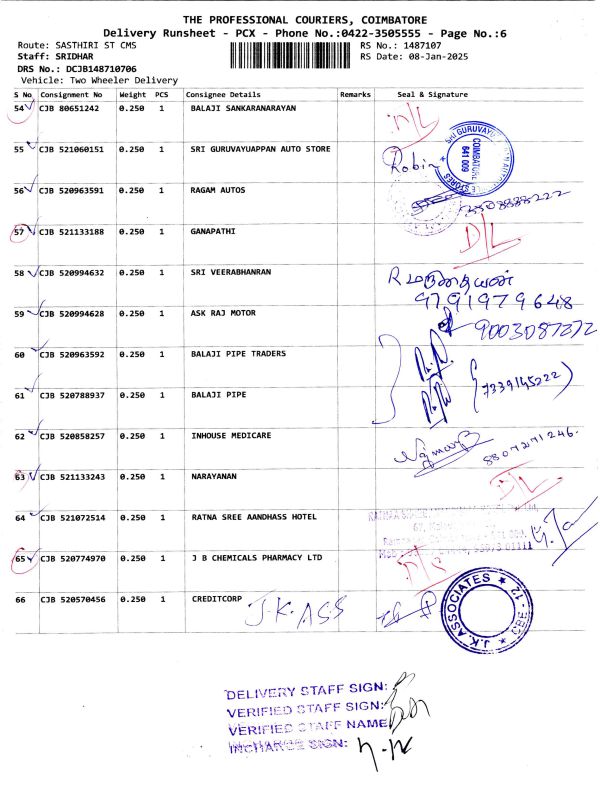 THE PROFESSIONAL COURIERS, COIMBATORE
Delivery Runsheet - PCX - Phone No.:0422-3505555 - Page No.:6
Route: SASTHIRI ST CMS
RS No.: 1487107
Staff: SRIDHAR
RS Date: 08-Jan-2025
DRS No.: DCJB148710706
Vehicle: Two Wheeler Delivery
S No Consignment No Weight PCS Consignee Details Remarks Seal & Signature
54 CJB 80651242 0.250 1 BALAJI SANKARANARAYAN D/L
55 CJB 521060151 0.250 1 SRI GURUVAYUAPPAN AUTO STORE Robin
COIMBATORE 641 009
56 CJB 520963591 0.250 1 RAGAM AUTOS
57 CJB 521133188 0.250 1 GANAPATHI D/L
58 CJB 520994632 0.250 1 SRI VEERABHANRAN R மருதையன்
9791979648
59 CJB 520994628 0.250 1 ASK RAJ MOTOR
60 CJB 520963592 0.250 1 BALAJI PIPE TRADERS
7339145222
61 CJB 520788937 0.250 1 BALAJI PIPE
62 CJB 520858257 0.250 1 INHOUSE MEDICARE
8807271246
63 CJB 521133243 0.250 1 NARAYANAN D/L
64 CJB 521072514 0.250 1 RATNA SREE AANDHASS HOTEL
65 CJB 520774970 0.250 1 J B CHEMICALS PHARMACY LTD
66 CJB 520570456 0.250 1 CREDITCORP J.K. ASS
J.K. ASSOCIATES ★ CBE - 12 ★
DELIVERY STAFF SIGN:
VERIFIED STAFF SIGN:
VERIFIED STAFF NAME
INCHARGE SIGN: